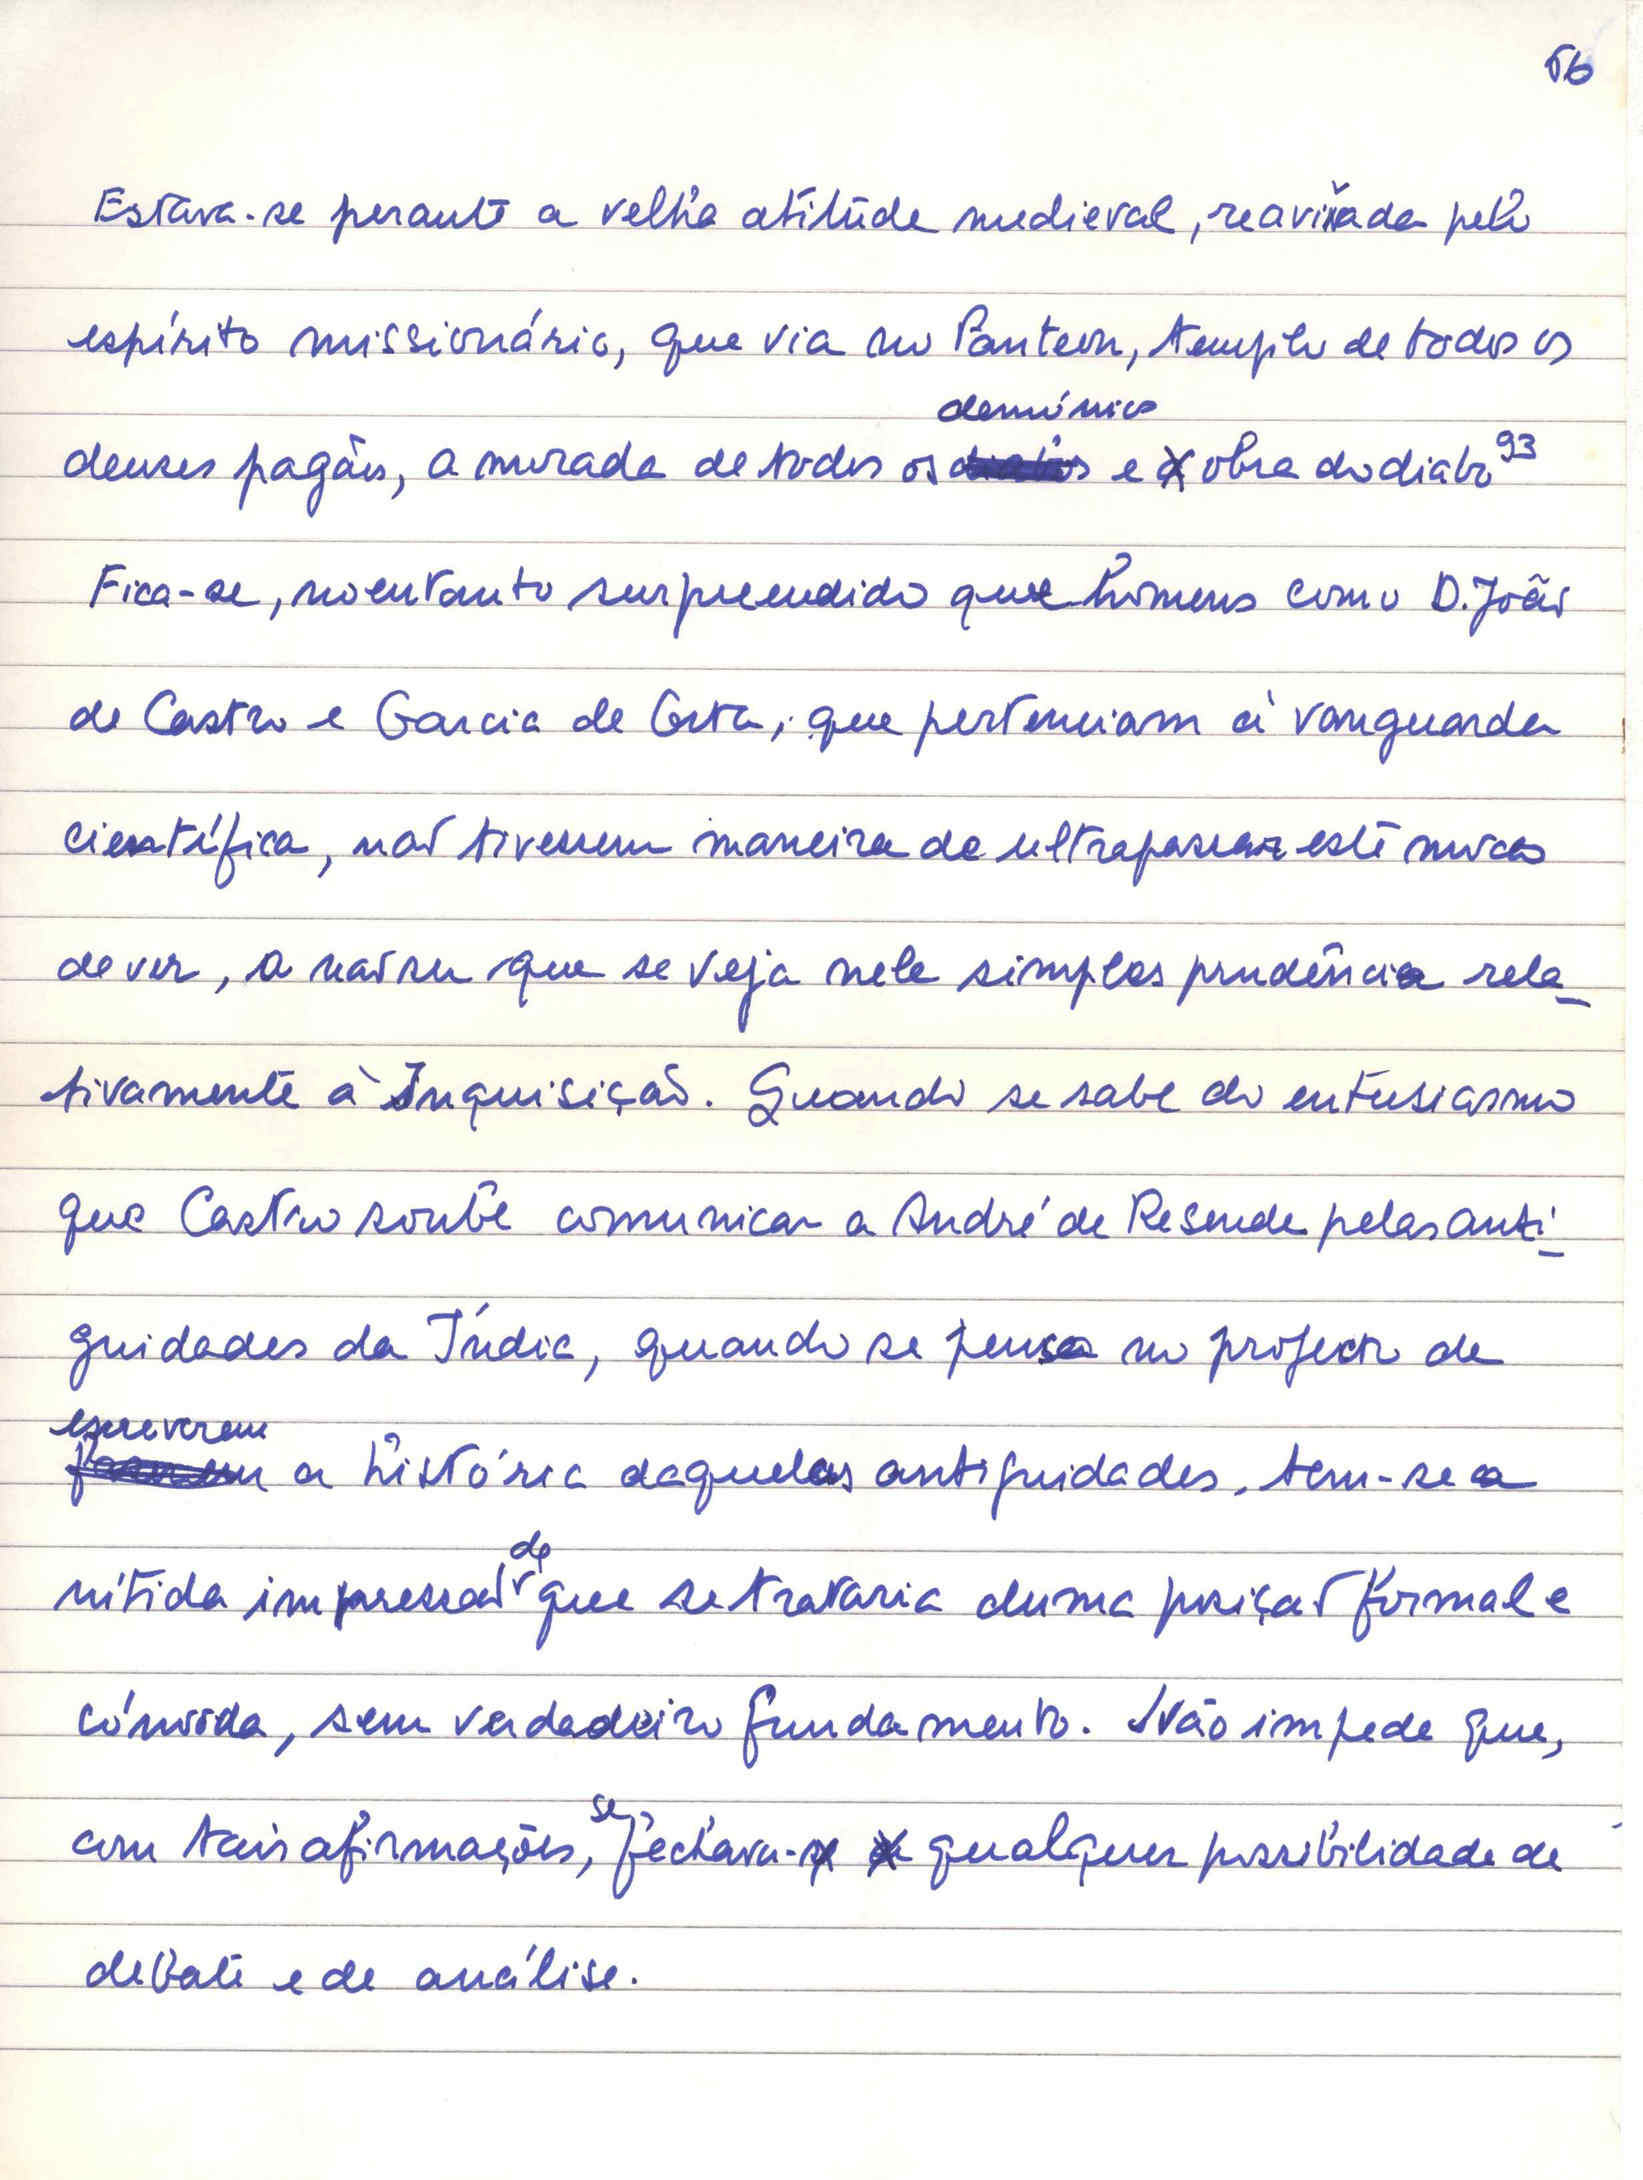 56
Estava-se perante a velha atitude medieval, reavivada pelo
espírito missionário, que via no Panteon, templo de todos os
demónios
deuses pagãos, a morada de todos os diabos e a obra do diabo 93
Fica-se, no entanto surpreendido que homens como D. João
de Castro e Garcia de Orta, que pertenciam à vanguarda
científica, não tivessem maneira de ultrapassar este modo
de ver, a não ser que se veja nele simples prudência rela-
tivamente à Inquisição. Quando se sabe do entusiasmo
que Castro soube comunicar a André de Resende pelas anti-
guidades da Índia, quando se pensa no projecto de
escreverem
a história daquelas antiguidades, tem-se a
de
nítida impressão que se trataria duma posição formal e
cómoda, sem verdadeiro fundamento. Não impede que,
se
com tais afirmações, fechava-se a qualquer possibilidade de
debate e de análise.